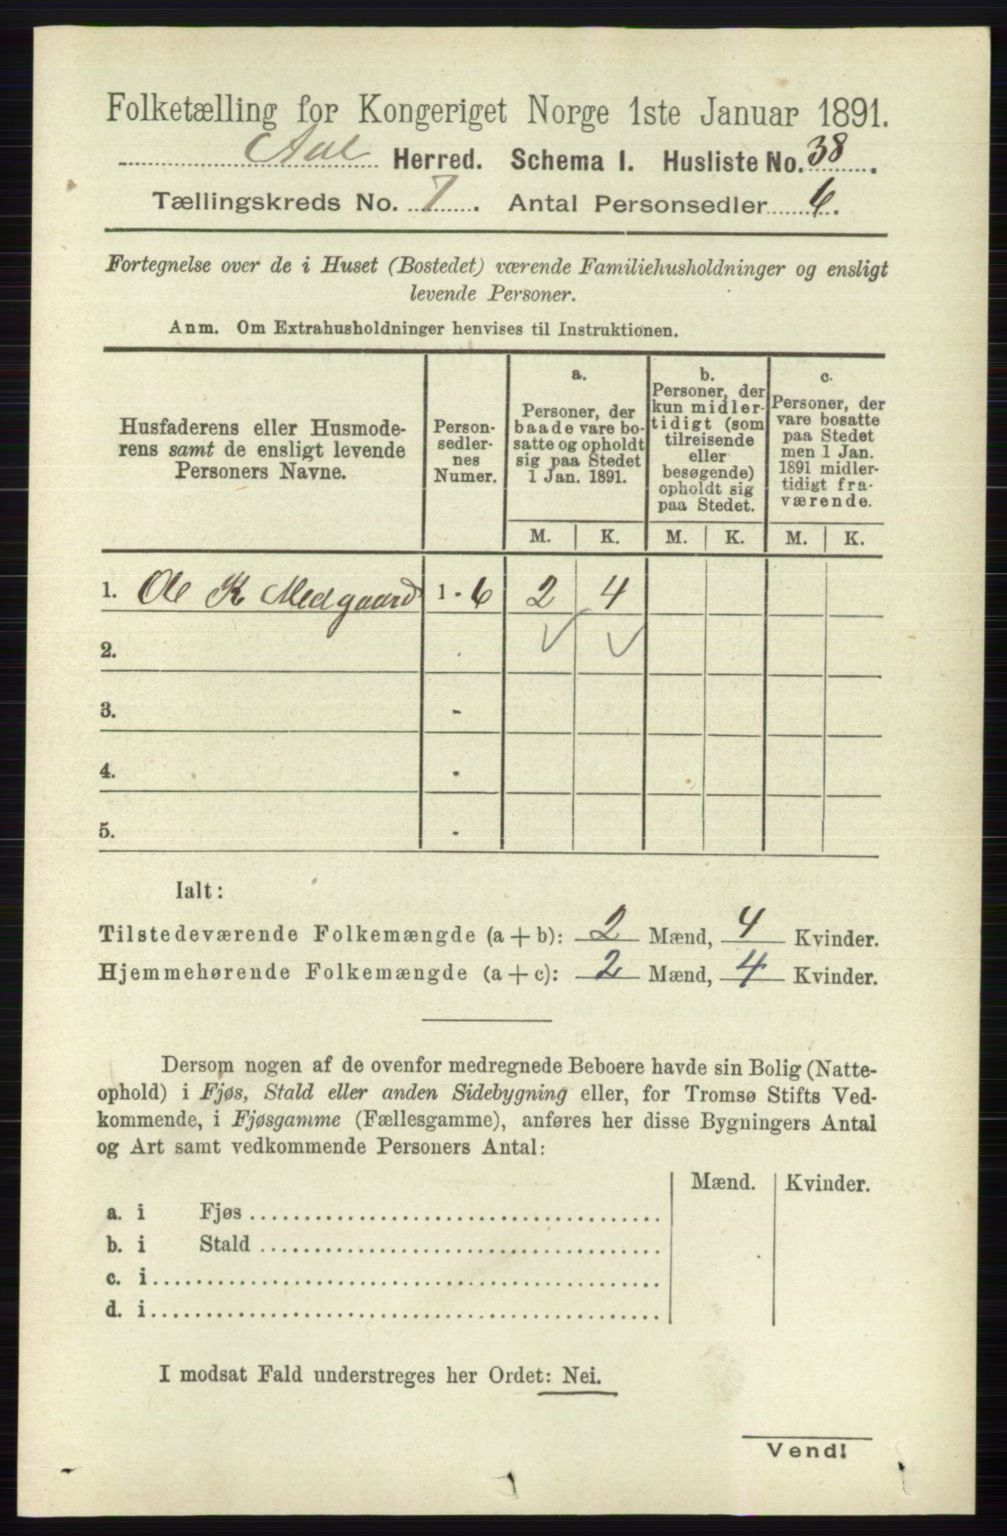 Folketælling for Kongeriget Norge 1ste Januar 1891.
Aal Herred. Schema I. Husliste No. 38.
Tællingskreds No. 7. Antal Personsedler 6.
Fortegnelse over de i Huset (Bostedet) værende Familiehusholdninger og ensligt
levende Personer.
Anm. Om Extrahusholdninger henvises til Instruktionen.
Husfaderens eller Husmode-
rens samt de ensligt levende
Personers Navne.
Person-
sedler-
nes
Numer.
a.
Personer, der
baade vare bo-
satte og opholdt
sig paa Stedet
1 Jan. 1891.
b.
Personer, der
kun midler-
tidigt (som
tilreisende
eller
besøgende)
opholdt sig
paa Stedet.
c.
Personer, der
vare bosatte
paa Stedet
men 1 Jan.
1891 midler-
tidigt fra-
værende.
M. K. M. K. M. K.
1. Ole K Medgaard 1-6 2 4
2.
3. -
4. -
5. -
Ialt:
Tilstedeværende Folkemængde (a+b): 2 Mænd, 4 Kvinder.
Hjemmehørende Folkemængde (a+c): 2 Mænd, 4 Kvinder.
Dersom nogen af de ovenfor medregnede Beboere havde sin Bolig (Natte-
ophold) i Fjøs, Stald eller anden Sidebygning eller, for Tromsø Stifts Ved-
kommende, i Fjøsgamme (Fællesgamme), anføres her disse Bygningers Antal
og Art samt vedkommende Personers Antal:
Mænd. Kvinder.
a. i Fjøs
b. i Stald
c. i
d. i
I modsat Fald understreges her Ordet: Nei.
Vend!